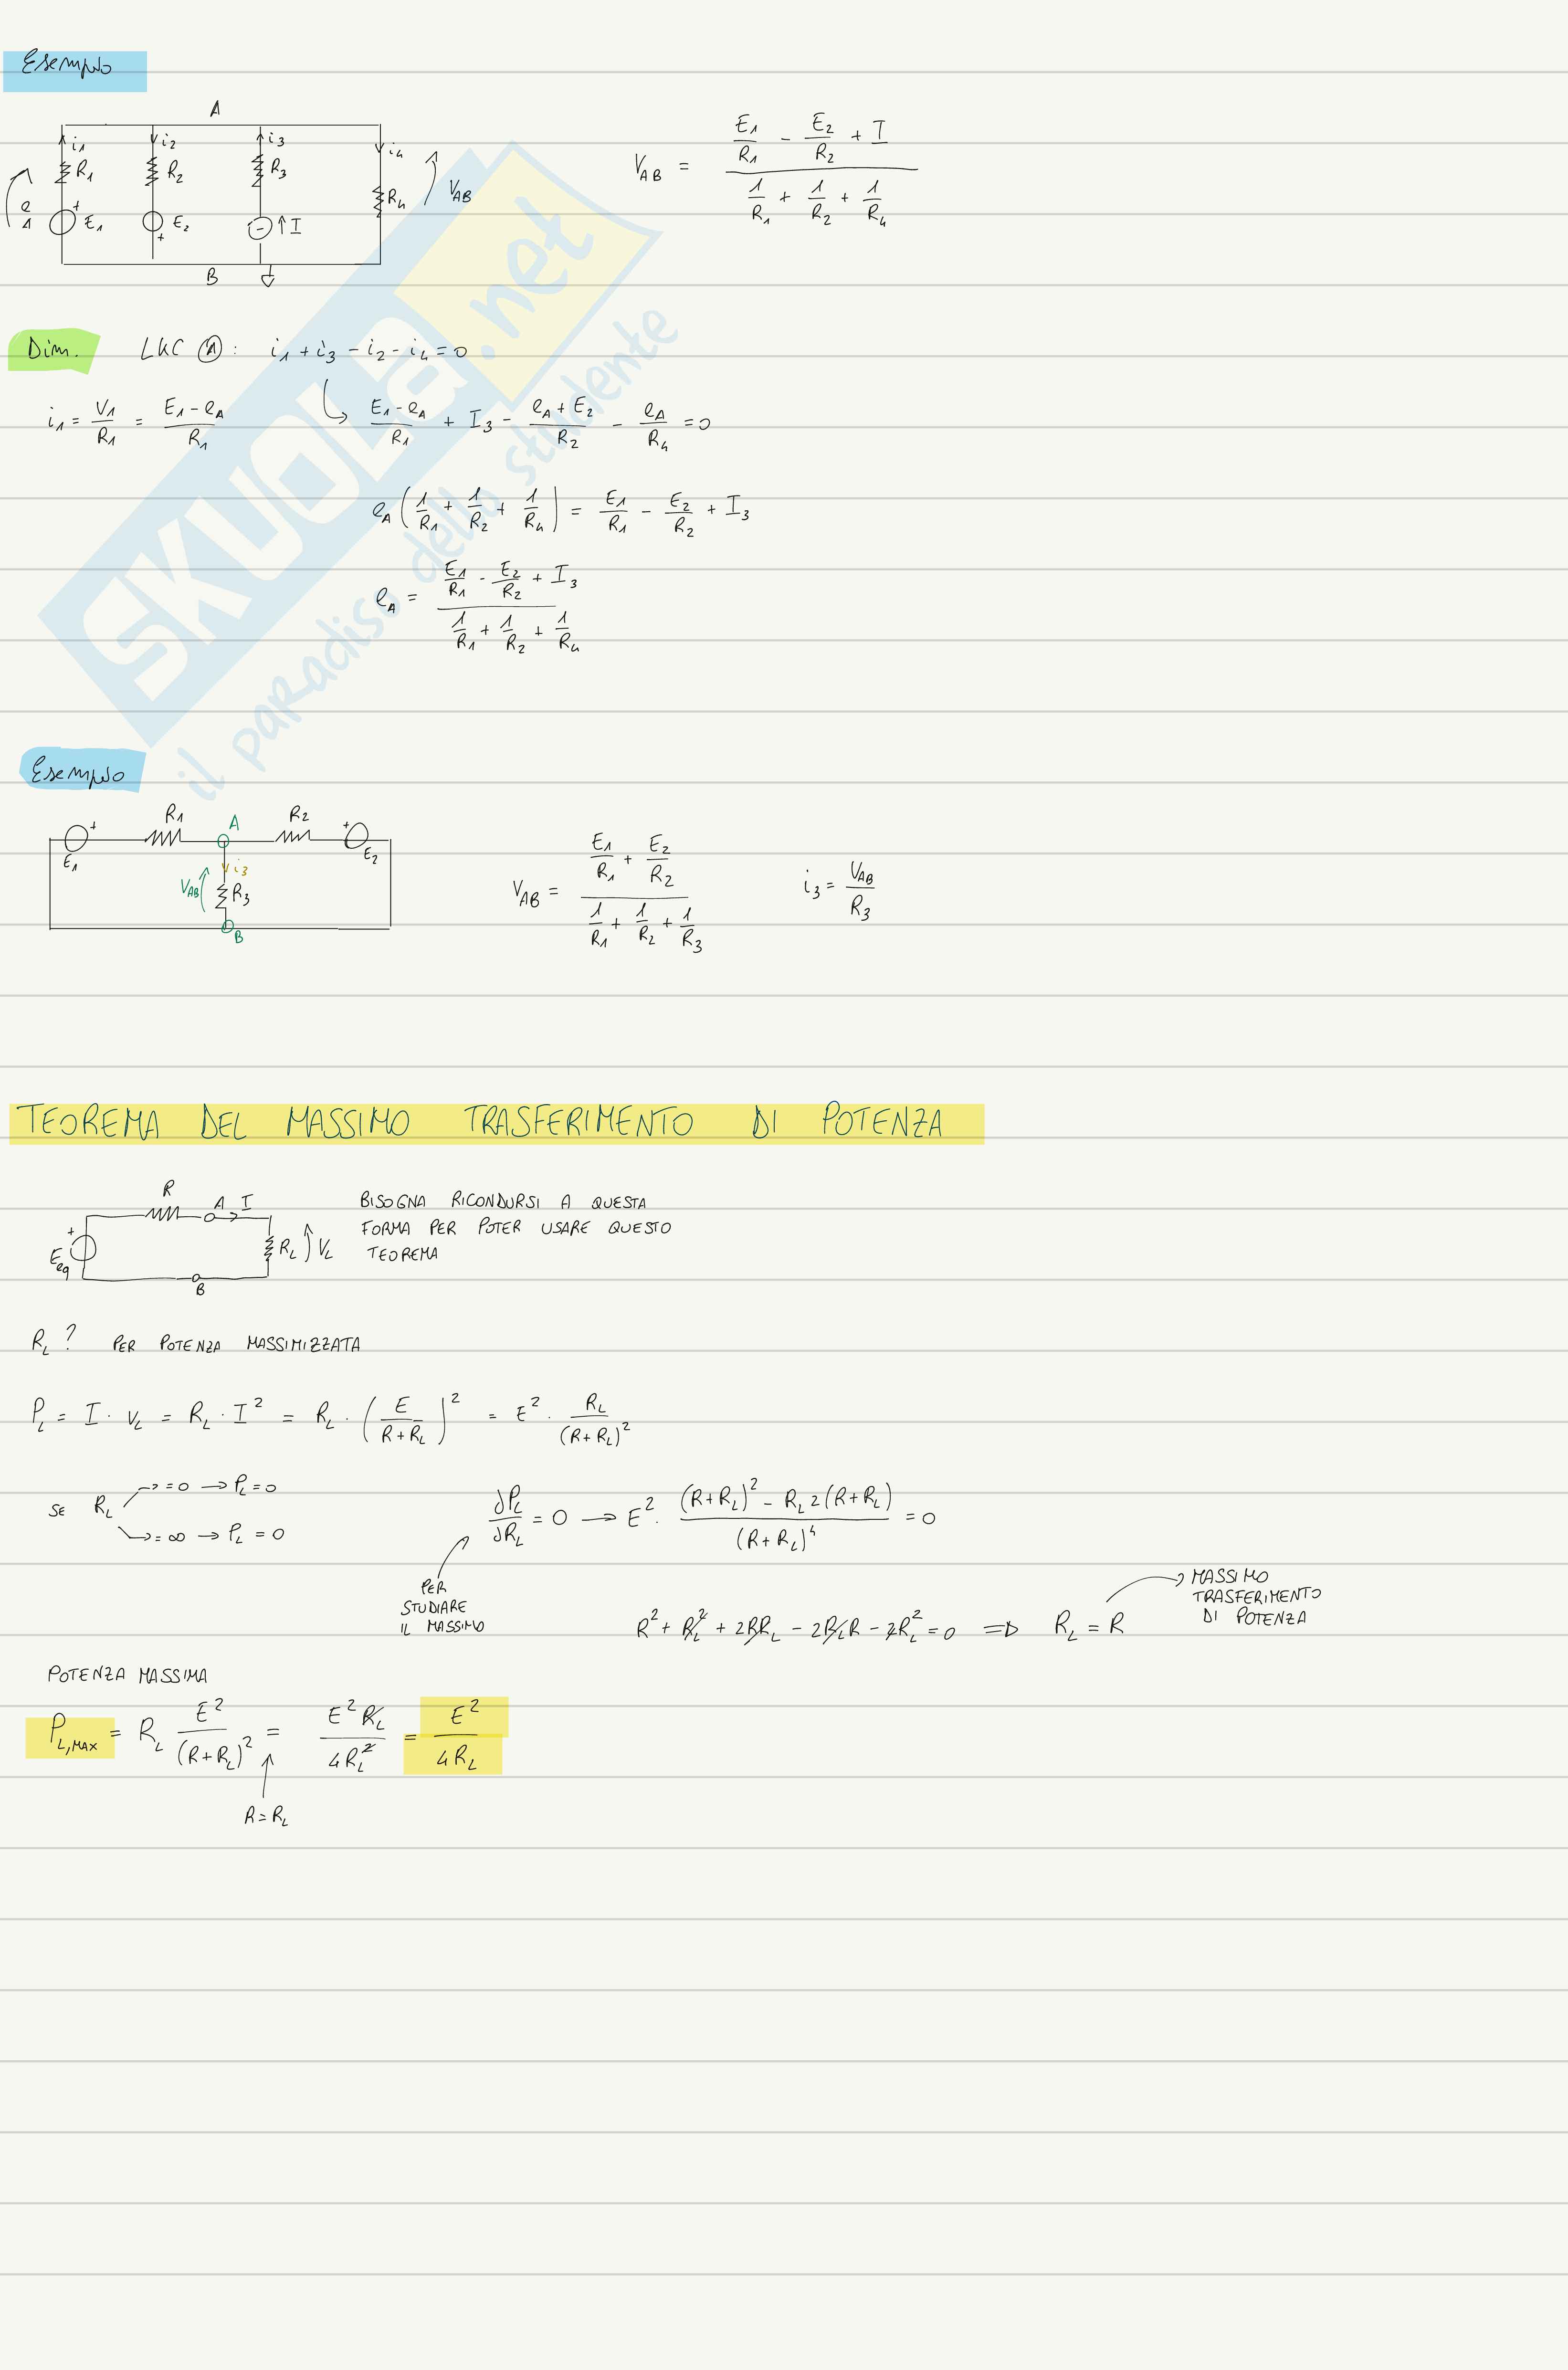 Esempio
A
i1 i2 i3 i4
R1 R2 R3 R4 VAB
eA + E1 E2 + I
B
VAB = (E1/R1 - E2/R2 + I) / (1/R1 + 1/R2 + 1/R4)
Dim. LKC Ⓐ: i1 + i3 - i2 - i4 = 0
i1 = V1/R1 = (E1 - eA)/R1 (E1 - eA)/R1 + I3 - (eA + E2)/R2 - eA/R4 = 0
eA (1/R1 + 1/R2 + 1/R4) = E1/R1 - E2/R2 + I3
eA = (E1/R1 - E2/R2 + I3) / (1/R1 + 1/R2 + 1/R4)
SKUOLa.net
il paradiso dello studente
Esempio
R1 A R2
+ E1 + E2
i3
VAB R3
B
VAB = (E1/R1 + E2/R2) / (1/R1 + 1/R2 + 1/R3) i3 = VAB/R3
TEOREMA DEL MASSIMO TRASFERIMENTO DI POTENZA
R A I
+ Eeq RL VL
B
BISOGNA RICONDURSI A QUESTA
FORMA PER POTER USARE QUESTO
TEOREMA
RL ? PER POTENZA MASSIMIZZATA
PL = I · VL = RL · I² = RL · (E/(R+RL))² = E² · RL/(R+RL)²
SE RL → = 0 → PL = 0
→ = ∞ → PL = 0
∂PL/∂RL = 0 → E² · ((R+RL)² - RL 2(R+RL))/(R+RL)⁴ = 0
PER
STUDIARE
IL MASSIMO
R² + RL² + 2RRL - 2RLR - 2RL² = 0 ⇒ RL = R
MASSIMO
TRASFERIMENTO
DI POTENZA
POTENZA MASSIMA
PL,MAX = RL E²/(R+RL)² = E² RL/4RL² = E²/4RL
R = RL